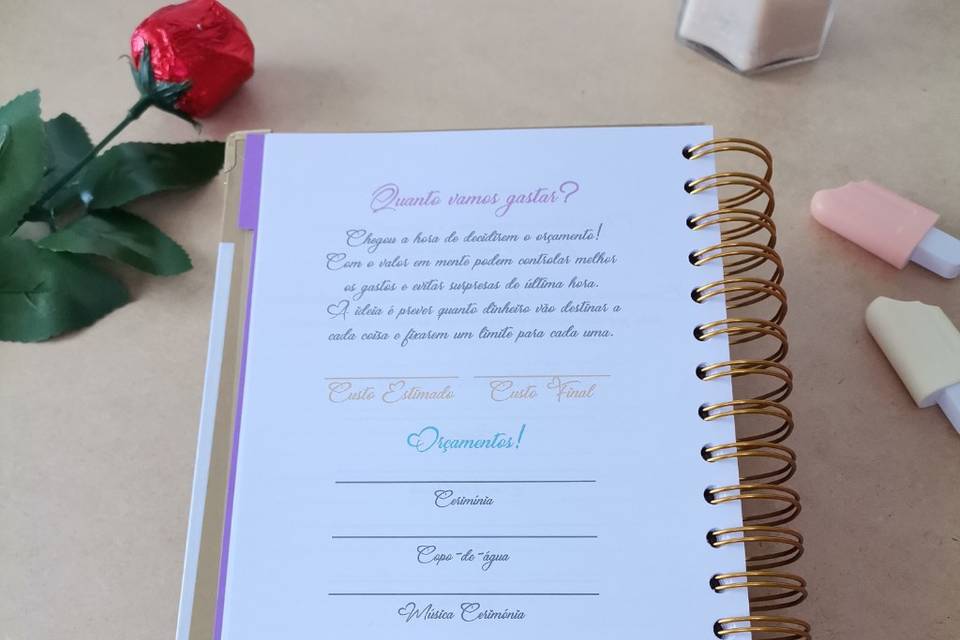 Quanto vamos gastar?
Chegou a hora de decidirem o orçamento!
Com o valor em mente podem controlar melhor
os gastos e evitar surpresas de última hora.
A ideia é prever quanto dinheiro vão destinar a
cada coisa e fixarem um limite para cada uma.
Custo Estimado Custo Final
Orçamentos!
Cerimínia
Copo-de-água
Música Cerimónia